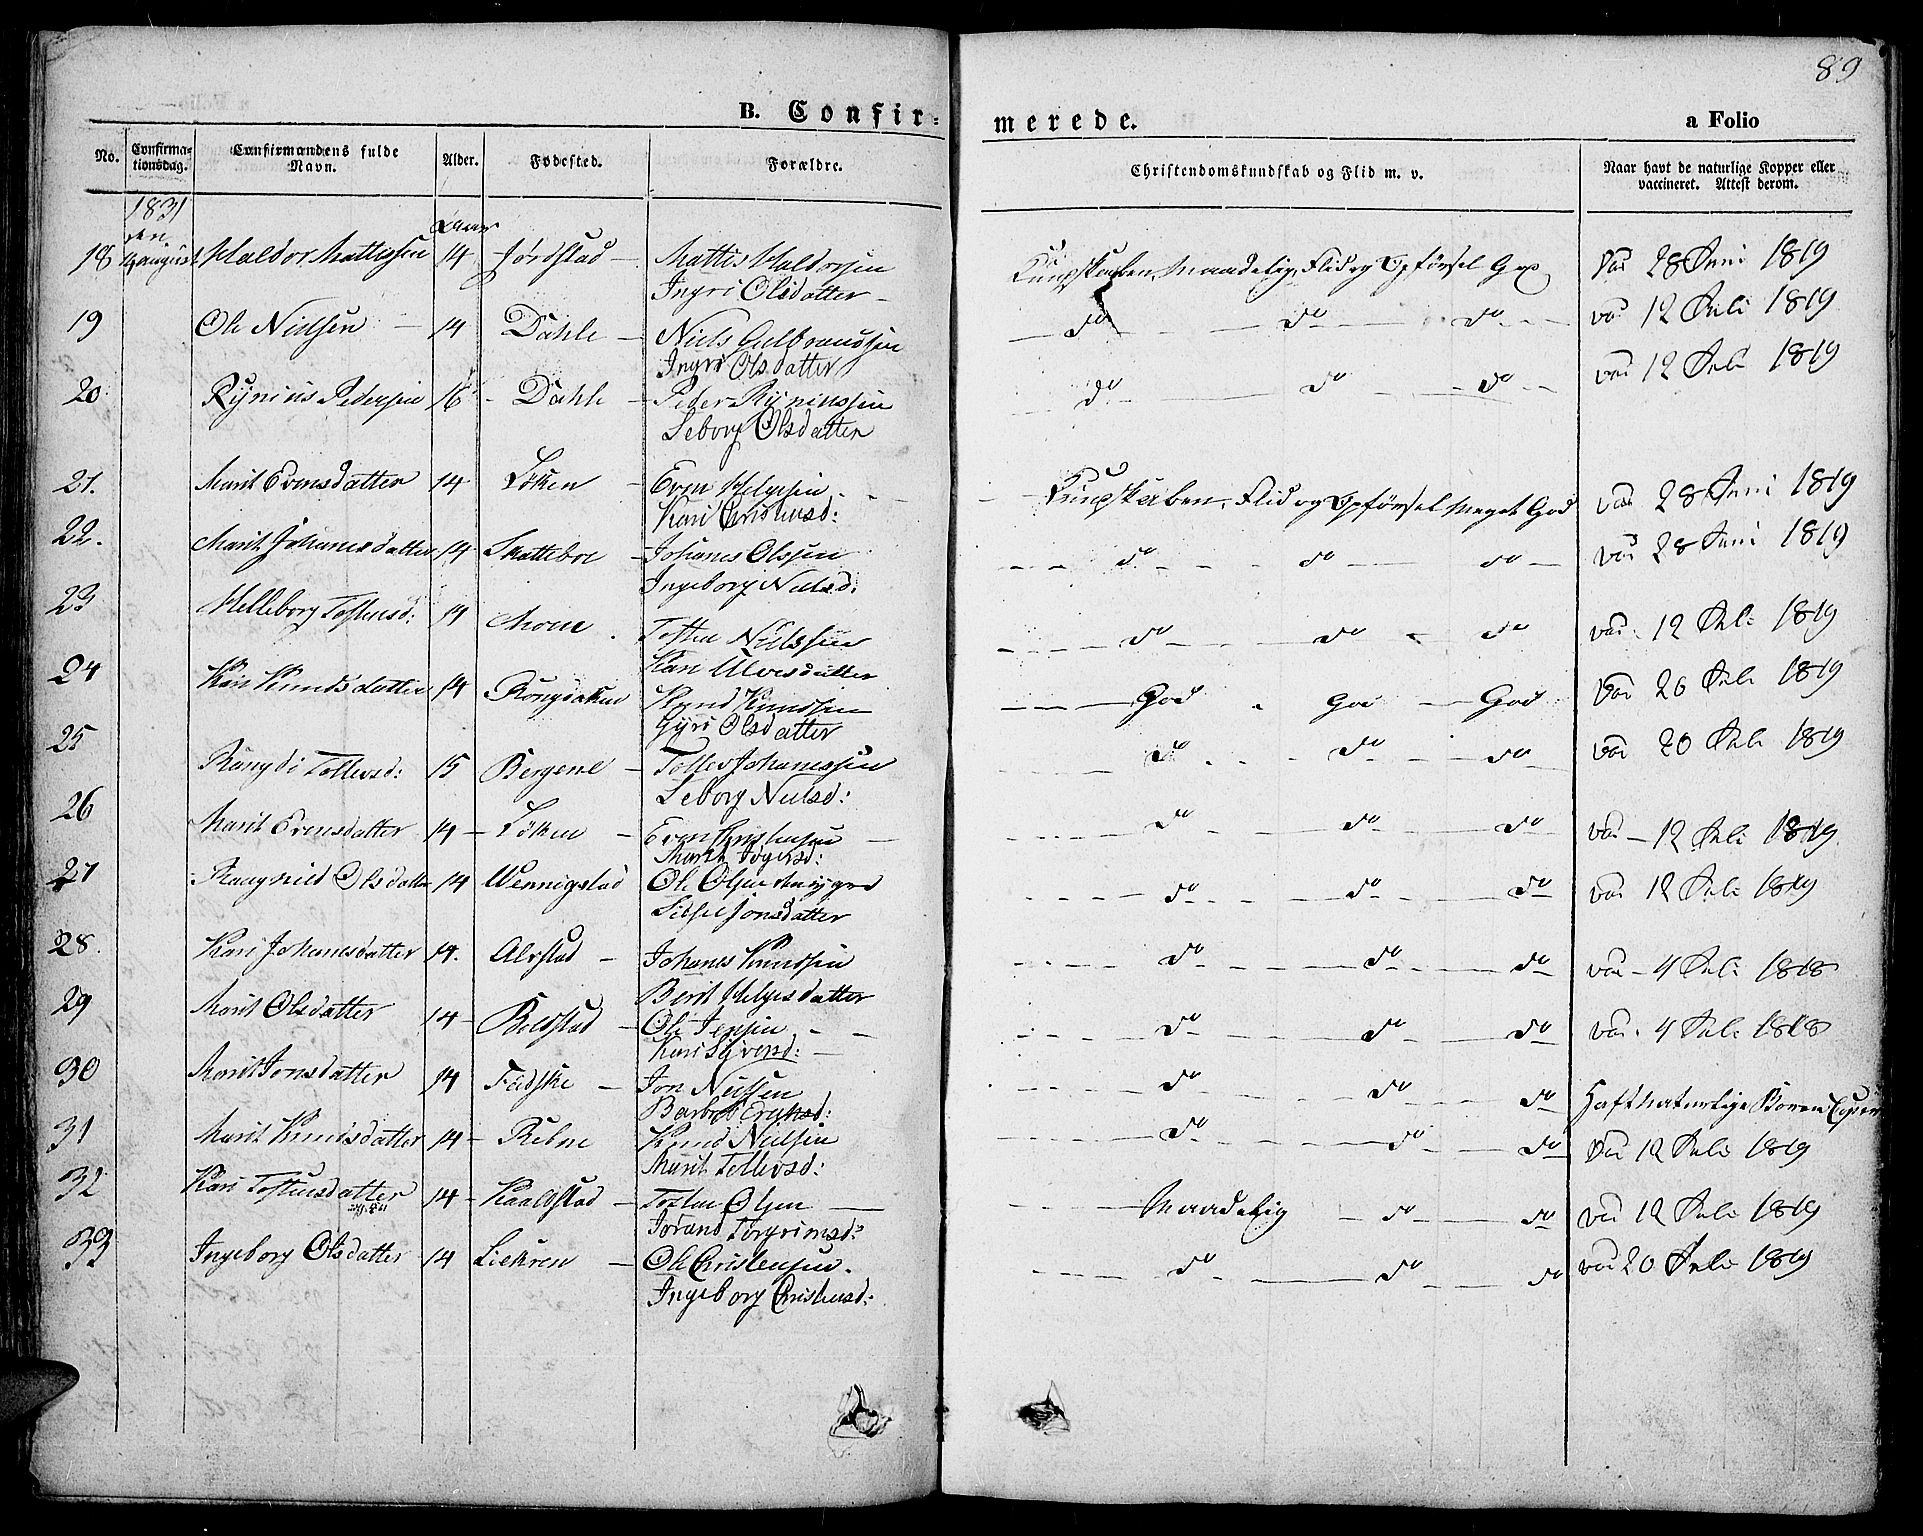 89
B. Confir- merede. a Folio
No. Confirma-tionsdag. Confirmandens fulde Navn. Alder. Fødested. Forældre. Christendomskundskab og Flid m. v. Naar havt de naturlige Kopper eller vaccineret. Attest derom.
1831
den Aar
18 august Haldor Mattissen 14 Jørdstad Mattis Haldorsen Kundskaben Maadelig, Flid og Opførsel God 28 Juni 1819
Ingri Olsdatter
19 Ole Nielsen 14 Dahle Niels Gulbrandsen do do do vac 12 Juli 1819
Ingri Olsdatter
20 Rynius Pedersen 16 Dahle Peder Ryniussen do do do vac 12 Juli 1819
Seborg Olsdatter
21. Marit Evensdatter 14 Löken Even Helgesen Kundskaben, Flid og Opførsel Meget God vac 28 Juni 1819
Kari Christensd:
22. Marit Johanesdatter 14 Skatteboe Johanes Olssen do do do vac 28 Juni 1819
Ingeborg Nielsd:
23 Helleborg Tostensd: 14 Tosten Nielssen do do do vac 12 Juli 1819
Kari Ulvesdatter
24 Kari Knudsdatter 14 Knud Knudssen God God God vac 26 Juli 1819
Gyri Olsdatter
25 Rangdi Tollevsd: 15 Bergene Tollev Johanessen do do do vac 20 Juli 1819
Seborg Nielsd:
26 Marit Evensdatter 14 Löken Even Christensen do do do vac 12 Juli 1819
Marit
27 Raagnild Olsdatter 14 Wennigstad Ole Olsen do do do vac 12 Juli 1819
Sidsel Jonsdatter
28. Kari Johanesdatter 14. Alvstad Johanes Knudsen do do do vac 4 Juli 1818
Berit Helgesdatter
29 Marit Olsdatter 14 Bolstad Ole Jensen do do do vac 4 Juli 1818
Kari
30 Marit Jonsdatter 14 Fodske Jon Nielsen do do do Haft Naturlige
Barbro Eriksd:
31 Marit Knudsdatter 14 Rebne Knud Nielsen do do do vac 12 Juli 1819
Marit Tollevsd:
32 Kari Tostensdatter 14 Kaalstad Tosten Olsen Maadelig do do vac 12 Juli 1819
Jorand Torgrimsd:
33 Ingeborg Olsdatter 14 Liekren Ole Christensen do do do vac 20 Juli 1819
Ingeborg Christensd: